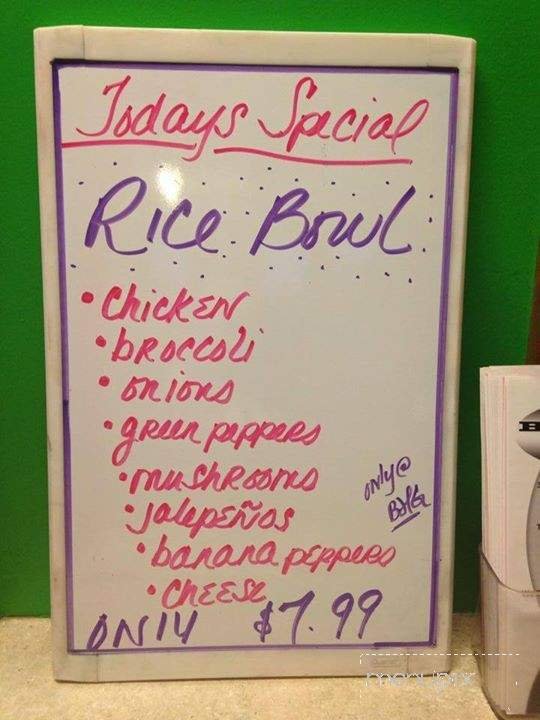 Todays Special
Rice Bowl
• Chicken
• broccoli
• onions
• green peppers
• mushrooms
• jalepeños
• banana peppers
• cheese
only @
ONLY $7.99
menupix